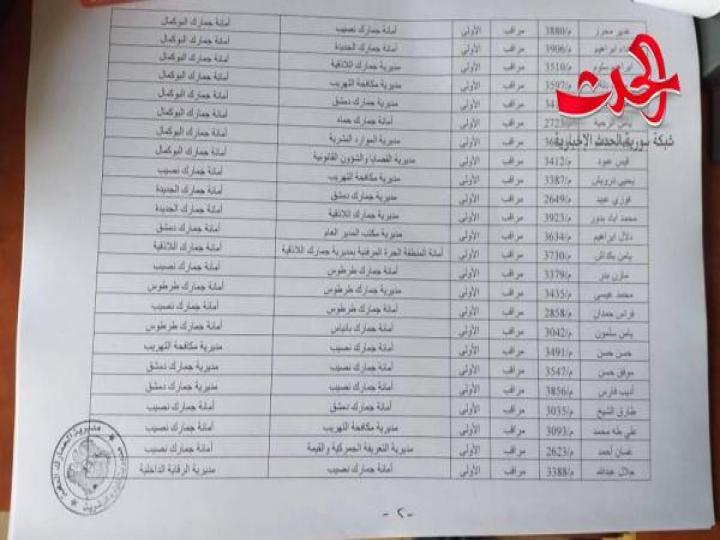 غدير محرز م/3880 مراقب الأولى أمانة جمارك نصيب أمانة جمارك البوكمال
ابراهيم م/3906 مراقب الأولى أمانة جمارك الجديدة أمانة جمارك البوكمال
ابراهيم سلوم م/3510 مراقب الأولى مديرية جمارك اللاذقية أمانة جمارك البوكمال
م/3597 مراقب الأولى مديرية مكافحة التهريب أمانة جمارك البوكمال
مراقب الأولى مديرية جمارك دمشق أمانة جمارك البوكمال
يامن الرحية مراقب الأولى أمانة جمارك حماه أمانة جمارك البوكمال
مراقب الأولى مديرية الموارد البشرية أمانة جمارك البوكمال
قيس عبود م/3412 مراقب الأولى مديرية القضايا والشؤون القانونية أمانة جمارك البوكمال
يحيى درويش م/3387 مراقب الأولى مديرية مكافحة التهريب أمانة جمارك نصيب
فوزي عبيد م/2649 مراقب الأولى مديرية جمارك دمشق أمانة جمارك الجديدة
محمد اياد بدور م/3923 مراقب الأولى مديرية جمارك اللاذقية أمانة جمارك الجديدة
دلال ابراهيم م/3634 مراقب الأولى مديرية مكتب المدير العام أمانة جمارك دمشق
يامن بكداش م/3730 مراقب الأولى أمانة المنطقة الحرة المرفئية بمديرية جمارك اللاذقية أمانة جمارك اللاذقية
مازن بدر م/3379 مراقب الأولى أمانة جمارك طرطوس أمانة جمارك نصيب
محمد عيسى م/3435 مراقب الأولى مديرية جمارك طرطوس أمانة جمارك طرطوس
فراس حمدان م/2858 مراقب الأولى أمانة جمارك طرطوس أمانة جمارك نصيب
يامن سلمون م/3042 مراقب الأولى أمانة جمارك بانياس أمانة جمارك طرطوس
حسن حسن م/3491 مراقب الأولى أمانة جمارك نصيب مديرية مكافحة التهريب
موفق حسن م/3547 مراقب الأولى أمانة جمارك نصيب مديرية جمارك دمشق
أديب فارس م/3856 مراقب الأولى أمانة جمارك نصيب مديرية جمارك دمشق
طارق الشيخ م/3035 مراقب الأولى أمانة جمارك دمشق أمانة جمارك نصيب
علي طه محمد م/3093 مراقب الأولى مديرية مكافحة التهريب أمانة جمارك نصيب
غسان أحمد م/2623 مراقب الأولى مديرية التعريفة الجمركية والقيمة أمانة جمارك نصيب
جلال عبدالله م/3388 مراقب الأولى أمانة جمارك نصيب مديرية الرقابة الداخلية
-٢-
الحدث
شبكة سورية الحدث الإخبارية